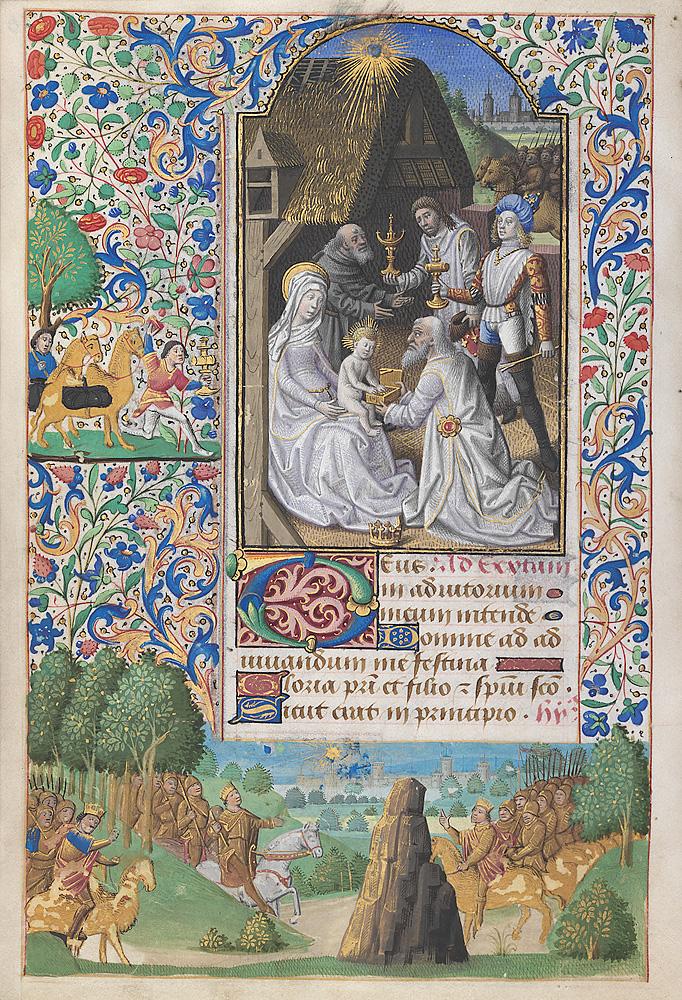 Deus. Ad Sextam
in adiutorium
meum intende
Domine ad ad
iuuandum me festina
Gloria pr̄i et filio ⁊ sp̄iu sc̄o.
Sicut erat in principio.